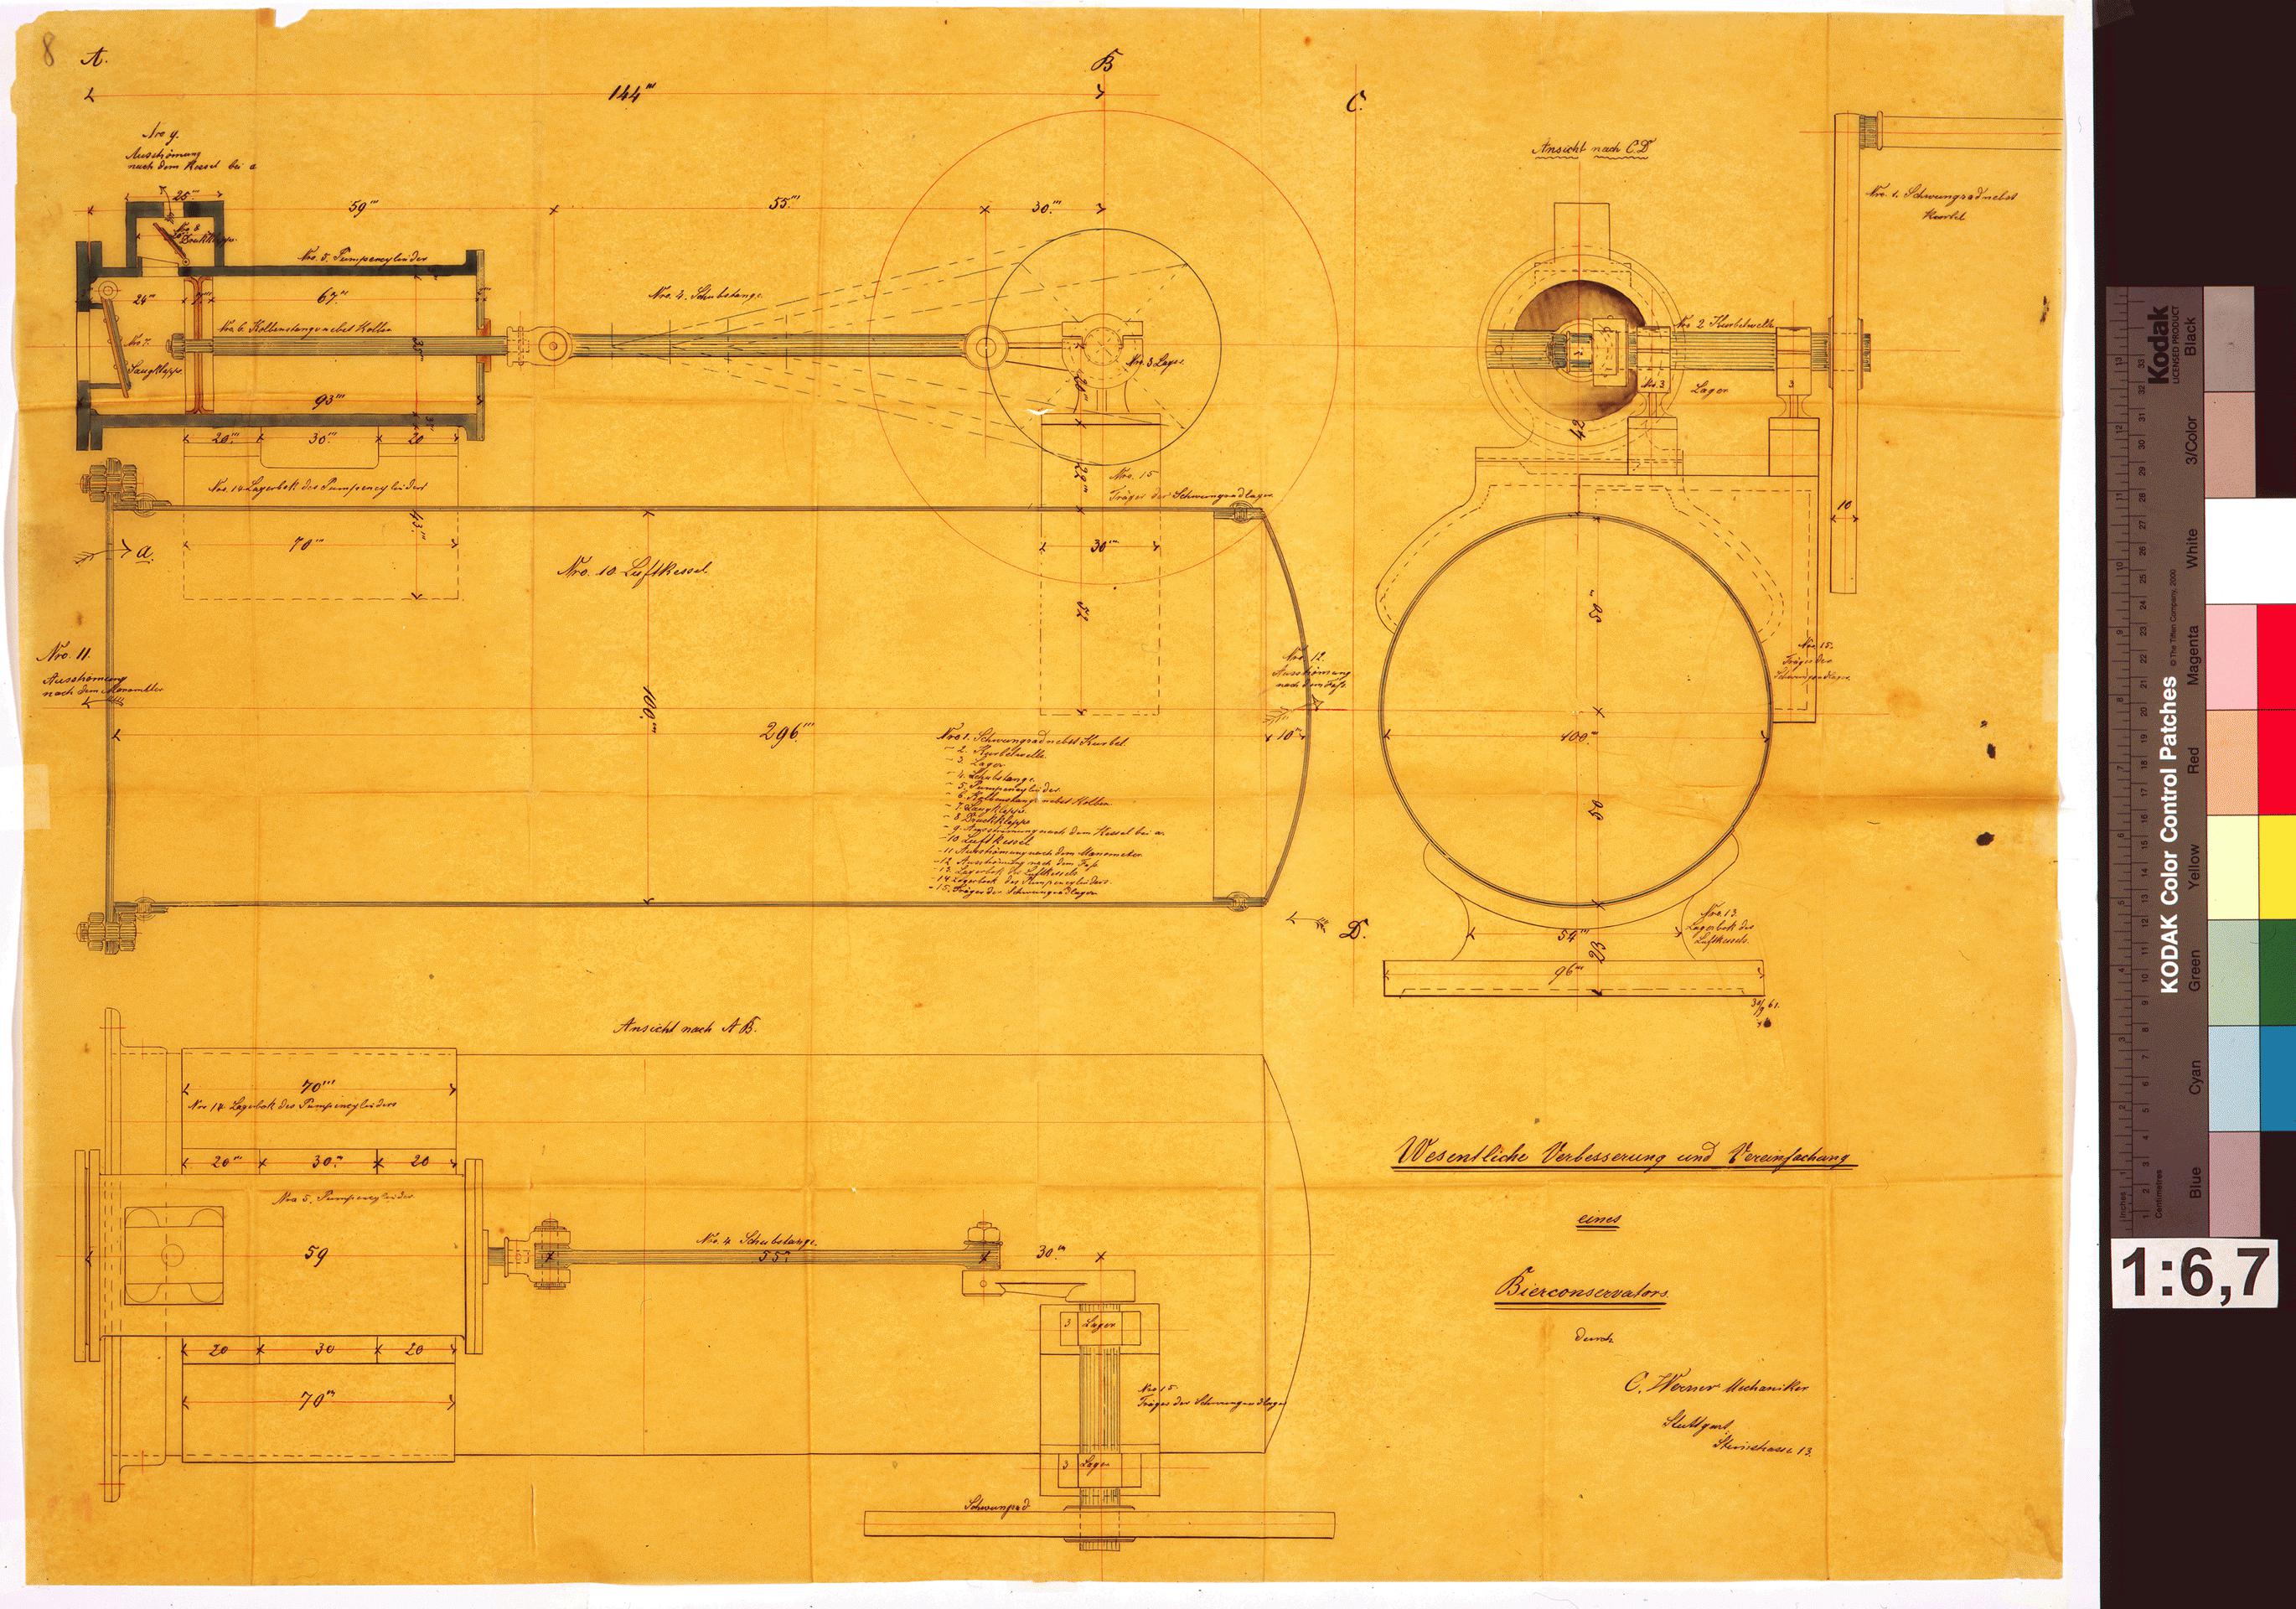 8
A.
B
144'''
C.
Nro 9.
Ausströmung
nach dem Kessel bei a
25'''
59'''
55'''
30'''
Nro 8
Druckklappe.
Nro. 5. Pumpencylinder
24'''
67'''
Nro. 4. Schubstange.
Nro 6. Kolbenstange nebst Kolben
Nro 7.
Saugklappe
Nro. 3 Lager.
93'''
20'''
30'''
20
Nro. 14 Lagerbok des Pumpencylinders
Nro. 15
Träger der Schwungradlager
43'''
70'''
a.
30'''
Nro. 10 Luftkessel.
52
Nro. 11.
Ausströmung
nach dem Manometer
Nro. 12.
Ausströmung
nach dem Faß.
100'''
296'''
10'''
Nro 1. Schwungrad nebst Kurbel.
" 2. Kurbelwelle.
" 3. Lager
" 4. Schubstange.
" 5. Pumpencylinder.
" 6. Kolbenstange nebst Kolben.
" 7. Saugklappe
" 8. Druckklappe
" 9. Ausströmung nach dem Kessel bei a.
" 10 Luftkessel
" 11 Ausströmung nach dem Manometer
" 12. Ausströmung nach dem Faß.
" 13. Lagerbock des Luftkessels
" 14. Lagerbock des Pumpencylinders.
" 15. Träger der Schwungradlager
D.
Ansicht nach C.D
Nro. 1. Schwungrad nebst
Kurbel
Nro 2 Kurbelwelle
Nro. 3
Lager
3
42
10
50
Nro. 15.
Träger der
Schwungradlager.
100'''
50
Nro. 13.
Lagerbok des
Luftkessels.
54'''
23
96'''
30/9 61.
Ansicht nach A B.
70'''
Nro 14. Lagerbok des Pumpencylinders
20'''
30'''
20
Nro 5. Pumpencylinder
59
Nro. 4. Schubstange.
55'''
30'''
3 Lager
20
30
20
70'''
Nro 15.
Träger der Schwungradlager
3 Lager
Schwungrad
Wesentliche Verbesserung und Vereinfachung
eines
Bierconservators.
durch
C. Werner Mechaniker
Stuttgart
13.
Kodak
LICENSED PRODUCT
KODAK Color Control Patches
© The Tiffen Company, 2000
Black
3/Color
White
Magenta
Red
Yellow
Green
Cyan
Blue
Inches
Centimetres
1:6,7